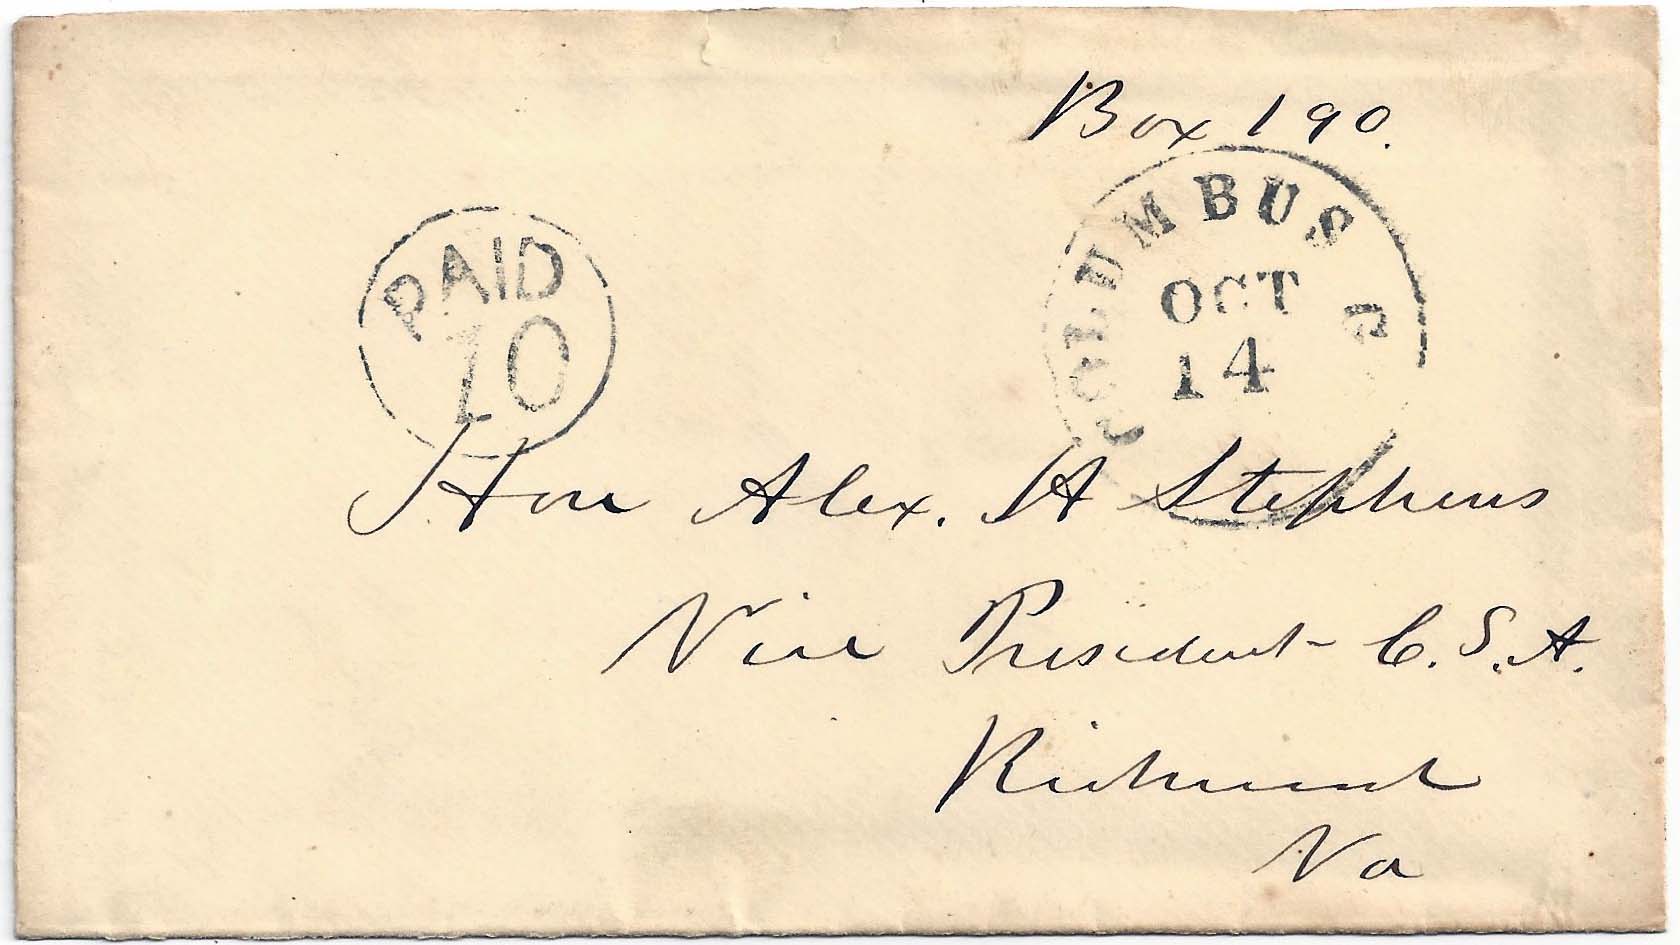 Box 190.
PAID
10
COLUMBUS G
OCT
14
Hon Alex. H Stephens
Vice President C.S.A.
Richmond
Va